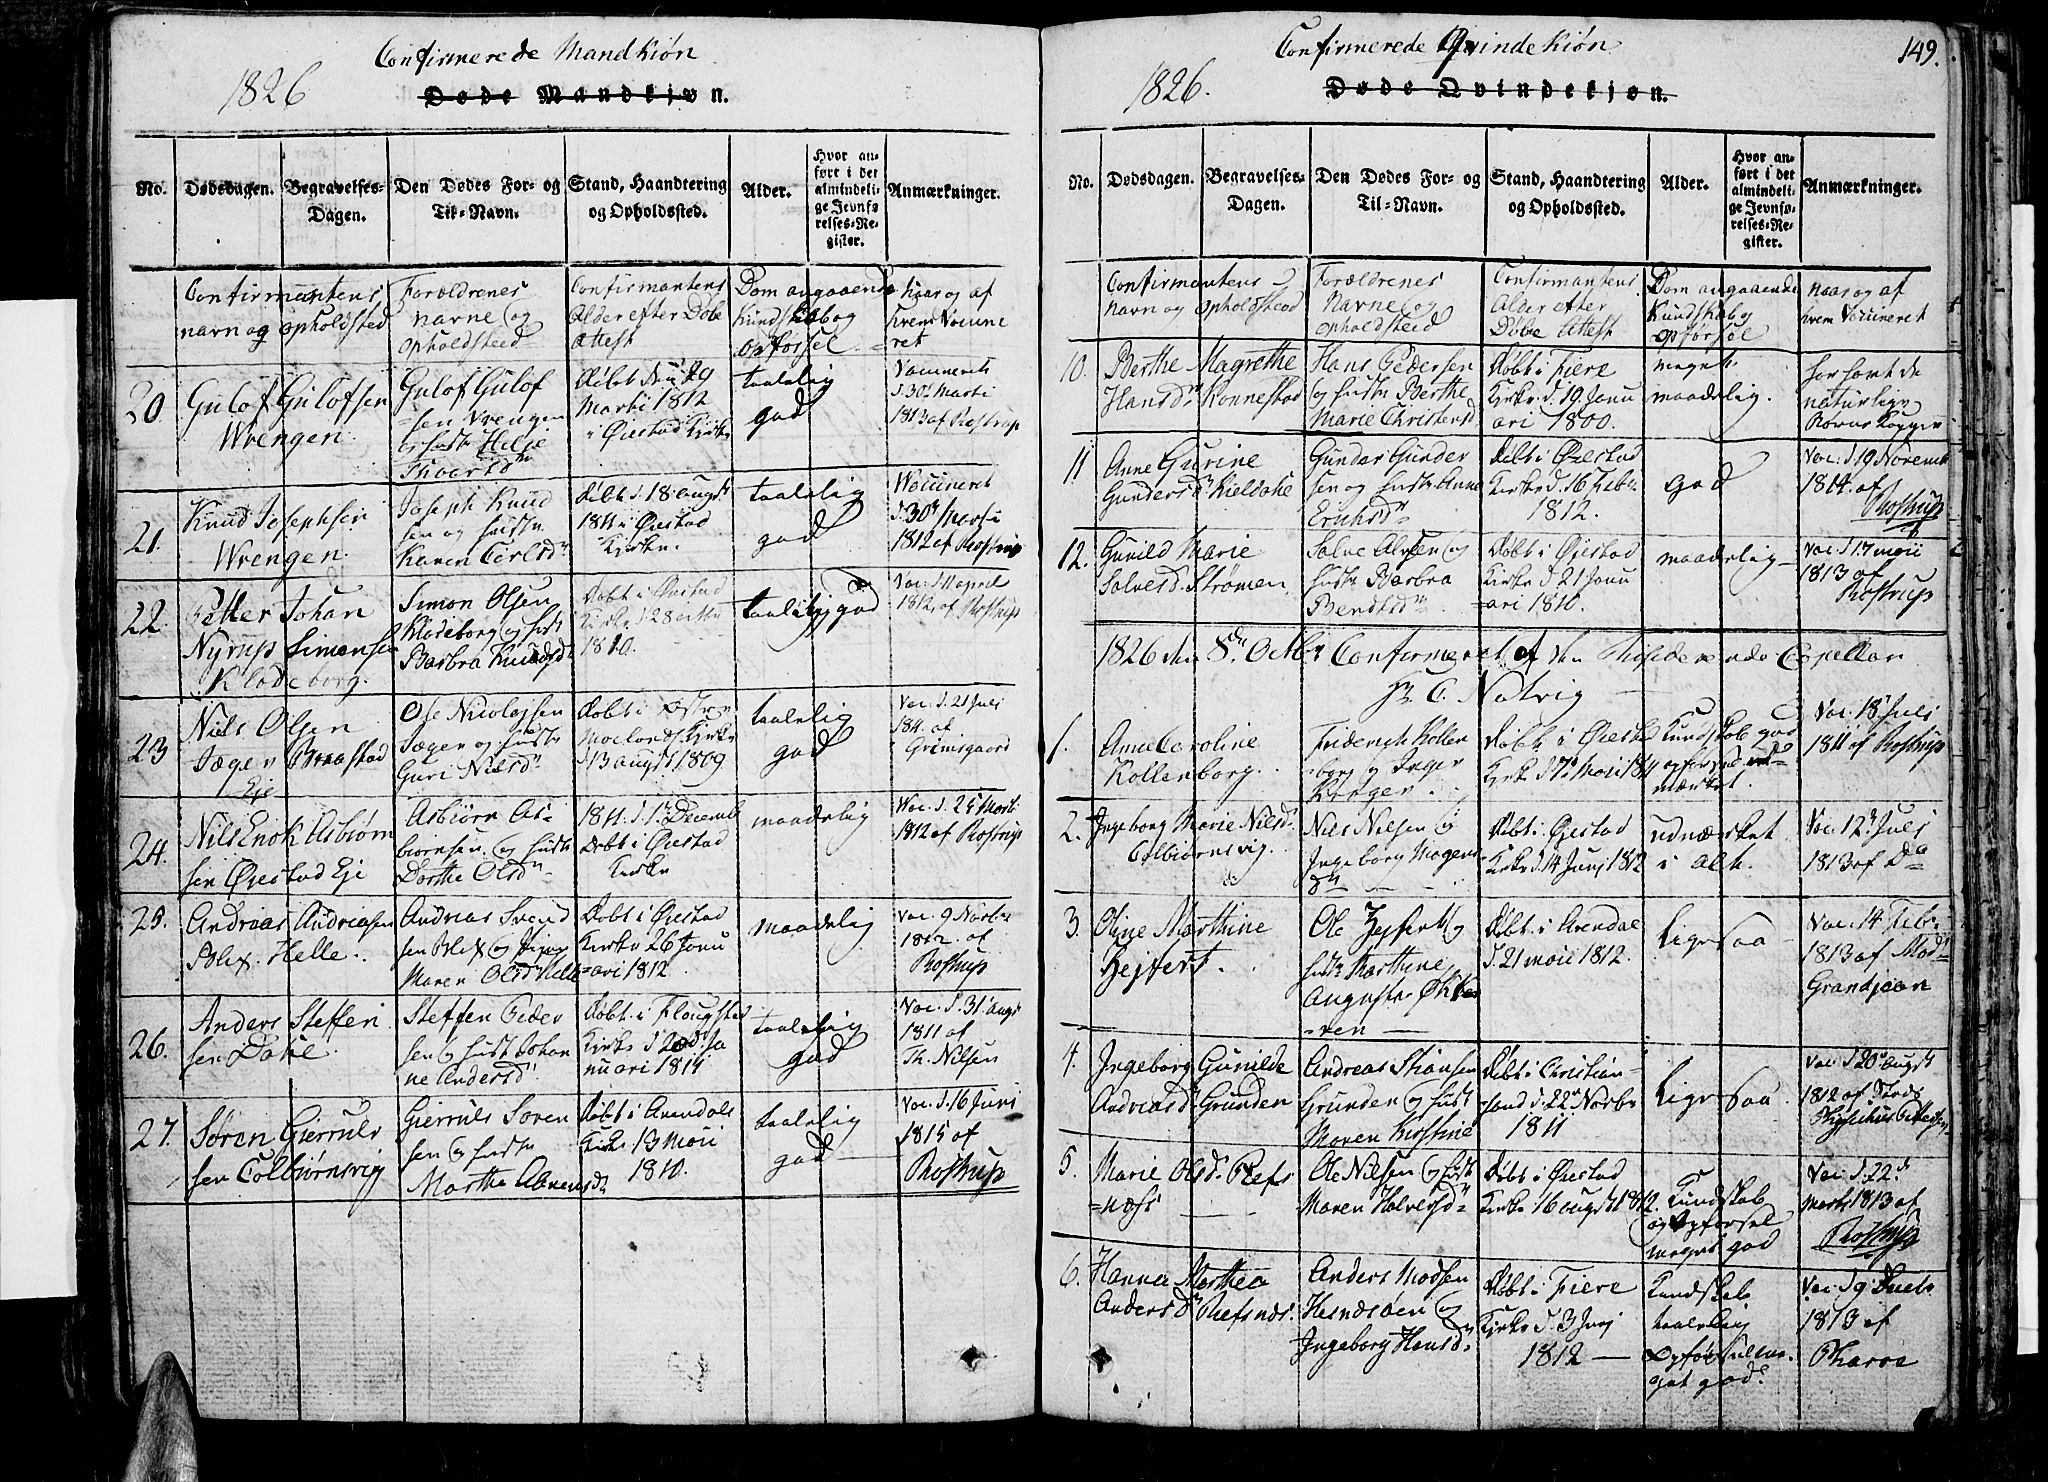 Confirmerede Mandkiøn
1826
Døde Mandkjøn.
No.
Dødsdagen.
Begravelses-
Dagen.
Den Dødes For- og
Til-Navn.
Stand, Haandtering
og Opholdssted.
Alder.
Hvor an-
ført i det
almindeli-
ge Jevnfø-
relses-Re-
gister.
Anmærkninger.
Confirmantens
navn og opholdsted
Forældrenes
navne og
opholdsteed
Confirmantens
Alder efter Døbe
attest
Dom angaaende
Kundskab og
opførsel
naar og af
hvem Vaccine
ret
20
Gulof Gulofsen
Wrengen
Gulof Gulof
sen Wrengen
og hustr Helje
Døbt 29
Marti 1812
i Øiestad Kirke
taalelig
god
Vaccineret
d. 30 Marti
1813 af Rostrup
21.
Knud Josephsen
Wrengen.
Joseph Knud
sen og hustr
Karen
Døbt d. 18 augst
1811 i Øiestad
Kirke.
taalelig
god
Vaccineret
d. 30
1812 af Rostrup
22.
Petter Johan
Nyrup Simonsen
Klodeborg.
Simon Olsen
Klodeborg og hust
Barbra
Døbt i Øiestad
Kirke d. 28
1810.
taalelig god
Vac. d. 11 april
1812, af Rostrup
23
Niels Olsen
Jæger Braastad
Eje
Ole Nicolajsen
Jæger og hustr
Guri Nielsd
Døbt i Østre
Moelands Kirke
d 13 augst 1809
taalelig
god
Vac. d. 21 Juli
af
Grimsgaard
24.
Nils Enok Asbiørn
sen Øiestad Eje
Asbiørn As-
biørnsen og hustr
Dorthe Olsd
1811. d. 1 Decemb
Døbt i Øiestad
Kirke
maadelig
Vac. d. 25 Marti
1812 af Rostrup
25.
Andreas Andreasen
Blix. Helle.
Andreas Svend
sen Blix og Pigen
Maren Olsd Helle
Døbt i Øiestad
Kirke 26 Janu
ari 1812.
maadelig
vac. 9 Novbr
1812. af
Rostrup
26.
Anders Steffen
sen Dahle.
Steffen Peder
sen og hust Johan
ne Andersd
Døbt i
Kirke d. 2 Ja
nuari 1811
taalelig
god
Vac. d. 31 augst
1811 af
Th. Nilsen
27.
Søren Gierruls
sen Colbiørnsvig
Gierruls Søren
sen og hustr
Marthe
Døbt i Arendals
Kirke 13 Maii
1810.
taalelig
god
Vac. d. 16 Juni
1815 af
Rostrup
Confirmerede Qvindekiøn
149.
1826.
Døde Qvindekjøn.
No.
Dødsdagen.
Begravelses-
Dagen.
Den Dødes For- og
Til-Navn.
Stand, Haandtering
og Opholdssted.
Alder.
Hvor an-
ført i det
almindeli-
ge Jevnfø-
relses-Re-
gister.
Anmærkninger.
Confirmantens
navn og opholdsteed
Forældrenes
Navne og
opholdsteed
Confirmantens
Alder efter
Døbe attest
Dom angaaende
Kundskab og
opførsel
naar og af
hvem Vaccineret
10.
Berthe Magrethe
Hansd. Konnestad
Hans Pedersen
og hustr Berthe
Marie Christensd
Døbt i Fiere
Kirke d. 19 Janu
ari 1800.
meget
maadelig.
har havt de
naturlige
Kopper
11
Anne Gurine
Gundersd. Kieldahe
Gunder Gunder
sen og hustr Anne
Erichsd
Døbt i Øiestad
Kirke d. 16 Feb.
1812.
god
Vac. d 19 Novemb
1814. af
Rostrup
12.
Gunild Marie
Salvesd. Strømen
Salve Alfsen og
hustr Barbra
Bendtsd
Døbt i Øiestad
Kirke d. 21 Janu
ari 1810.
maadelig
Vac. d 17 maii
1813 af
Rostrup
1826 den 8de Octbr Confirmeret af den Residerende Capellan
Hr. C. Natvig
1.
Anne Caroline
Kollenborg.
Friderich Kollen
borg og Inger
Krøger.
Døbt i Øiestad
Kirke d. 7 Maii 1811
Kundskab god
opførsel ud-
mærket.
Vac. 18 Juli
1811 af Rostrup
2.
Ingeborg Marie Nilsd.
Colbiørnsvig.
Nils Nilsen og
Ingeborg Mogens
dtr
Døbt i Øiestad
Kirke d. 14 Junj 1812
udmærket
i alt.
Vac. 12 Juli
1813 af Do
3.
Oline Marthine
Zejfert.
Ole Zejfert og
hustr Marthine
Augusta
Døbt i Arendal
d. 21 maii 1812.
Ligesaa
Vac. 14 Feb.
1813 af Mad
Grandjean
4.
Ingeborg Gunilde
Andreasd. Grunden
Andreas Stiansen
Grunden og hustr
Maren Kirstine
Døbt i Christian-
sand d. 22 Novbr
1811
Ligesaa.
Vac. d 20 augst
1812 af
5.
Marie Olsd. Refs
næs
Ole Nilsen og hustr
Maren Halvorsd
Døbt i Øiestad
Kirke 16 augst 1812.
Kundskab
og Opførsel
meget god
Vac. d. 22
Marti 1813 af
Rostrup
6.
Hanna Marthea
Andersd Refsnæs.
Anders Madsen
og
Ingeborg Hansd.
Døbt i Fiere
Kirke d. 3 Junj
1812
Kundskab
taalelig
Opførsel me-
get god.
Vac. d 9
1813 af
Pharoe